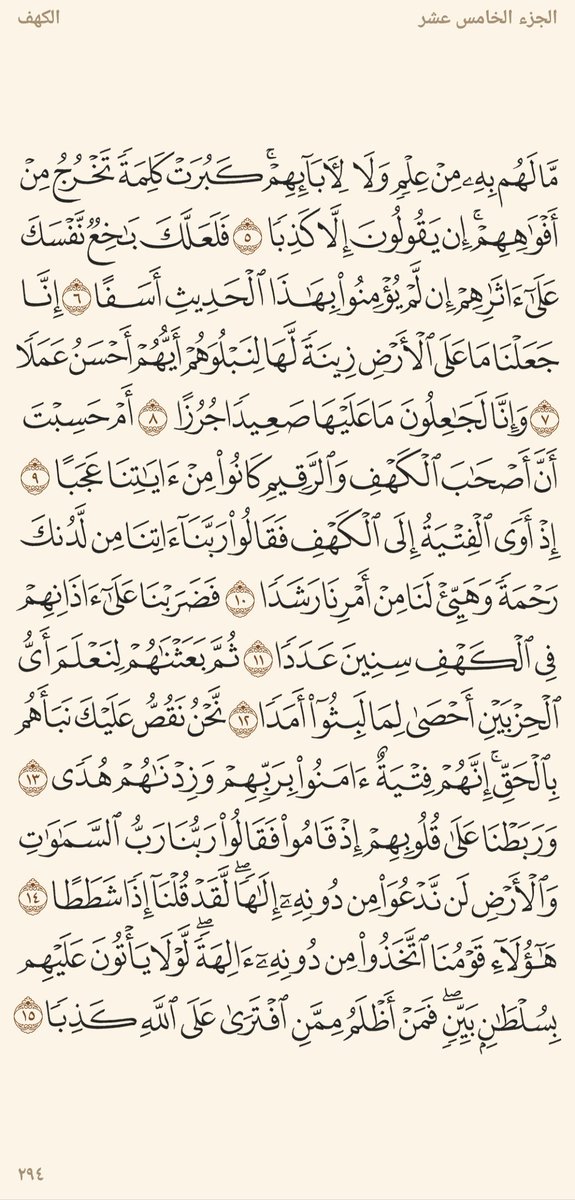 الجزء الخامس عشر
الكهف
مَّا لَهُم بِهِۦ مِنْ عِلْمٍ وَلَا لِأٓبَآئِهِمْۚ كَبُرَتْ كَلِمَةً تَخْرُجُ مِنْ
أَفْوَٰهِهِمْۚ إِن يَقُولُونَ إِلَّا كَذِبًا ٥ فَلَعَلَّكَ بَٰخِعٌ نَّفْسَكَ
عَلَىٰٓ ءَاثَٰرِهِمْ إِن لَّمْ يُؤْمِنُوا۟ بِهَٰذَا ٱلْحَدِيثِ أَسَفًا ٦ إِنَّا
جَعَلْنَا مَا عَلَى ٱلْأَرْضِ زِينَةً لَّهَا لِنَبْلُوَهُمْ أَيُّهُمْ أَحْسَنُ عَمَلًا
٧ وَإِنَّا لَجَٰعِلُونَ مَا عَلَيْهَا صَعِيدًا جُرُزًا ٨ أَمْ حَسِبْتَ
أَنَّ أَصْحَٰبَ ٱلْكَهْفِ وَٱلرَّقِيمِ كَانُوا۟ مِنْ ءَايَٰتِنَا عَجَبًا ٩
إِذْ أَوَى ٱلْفِتْيَةُ إِلَى ٱلْكَهْفِ فَقَالُوا۟ رَبَّنَآ ءَاتِنَا مِن لَّدُنكَ
رَحْمَةً وَهَيِّئْ لَنَا مِنْ أَمْرِنَا رَشَدًا ١٠ فَضَرَبْنَا عَلَىٰٓ ءَاذَانِهِمْ
فِى ٱلْكَهْفِ سِنِينَ عَدَدًا ١١ ثُمَّ بَعَثْنَٰهُمْ لِنَعْلَمَ أَىُّ
ٱلْحِزْبَيْنِ أَحْصَىٰ لِمَا لَبِثُوٓا۟ أَمَدًا ١٢ نَّحْنُ نَقُصُّ عَلَيْكَ نَبَأَهُم
بِٱلْحَقِّۚ إِنَّهُمْ فِتْيَةٌ ءَامَنُوا۟ بِرَبِّهِمْ وَزِدْنَٰهُمْ هُدًى ١٣
وَرَبَطْنَا عَلَىٰ قُلُوبِهِمْ إِذْ قَامُوا۟ فَقَالُوا۟ رَبُّنَا رَبُّ ٱلسَّمَٰوَٰتِ
وَٱلْأَرْضِ لَن نَّدْعُوَا۟ مِن دُونِهِۦٓ إِلَٰهًاۖ لَّقَدْ قُلْنَآ إِذًا شَطَطًا ١٤
هَٰٓؤُلَآءِ قَوْمُنَا ٱتَّخَذُوا۟ مِن دُونِهِۦٓ ءَالِهَةًۖ لَّوْلَا يَأْتُونَ عَلَيْهِم
بِسُلْطَٰنٍۭ بَيِّنٍۖ فَمَنْ أَظْلَمُ مِمَّنِ ٱفْتَرَىٰ عَلَى ٱللَّهِ كَذِبًا ١٥
٢٩٤